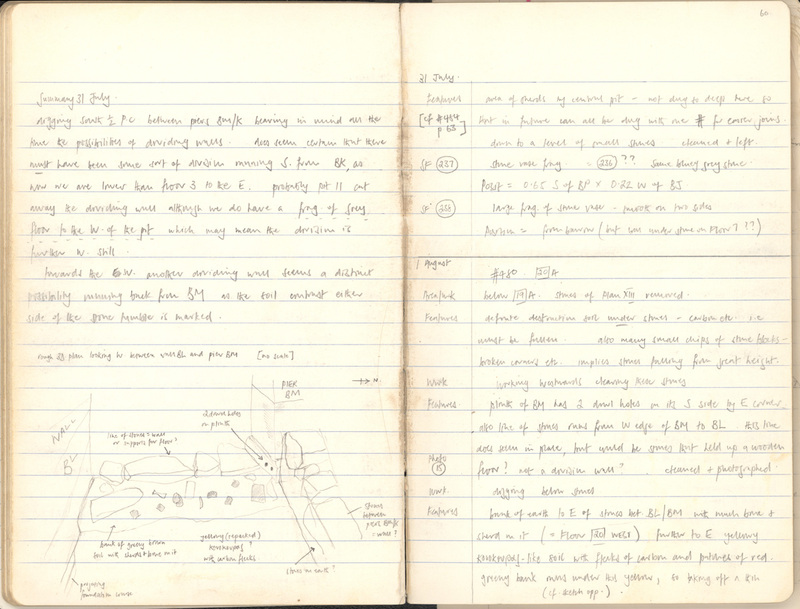 Summary 31 July.
digging South ½ PC between piers BM/K bearing in mind all the
time the possibilities of dividing walls. does seem certain that there
must have been some sort of division running S. from BK, as
now we are lower than floor 3 to the E. probably pit 11 cut
away the dividing wall although we do have a frag of grey
floor to the W. of the pit which may mean the division is
further W. still.
towards the SW. another dividing wall seems a distinct
possibility running back from BM as the soil contrast either
side of the stone tumble is marked.
rough plan looking W between wall BL and pier BM [no scale]
PIER
BM
→ N.
2 dowel holes
on plinth
WALL
BL
line of stones = wall
or supports for floor?
stones
between
piers BM/K
= wall?
bank of greeny brown
soil with sherds + bone on it
yellowy (repeated)
kouskouras?
with carbon flecks
stones on earth?
projecting
foundation course
60.
31 July.
Features area of sherds in central pit - not dug to deep here so
[cf #484 that in future can all be dug with one # for easier joins.
p 63] down to a level of small stones cleaned + left.
SF (237) stone vase frag. = (236)?? same bluey grey stone.
Posit = 0.65 S of BP x 0.22 W of BJ
SF (238) large frag. of stone vase - smooth on two sides
Position = from barrow (but came under stone on Floor 3??)
1 August
#480 20 A
Area/unit below 19 A. stones of Plan XIII removed.
Features definite destruction soil under stones - carbon etc. i.e
must be fallen. also many small chips of stone blocks -
broken corners etc. implies stones falling from great height.
Work working westwards clearing these stones
Features plinth of BM has 2 dowel holes on its S side by E corner,
also line of stones runs from W edge of BM to BL this line
does seem in place, but could be stones that held up a wooden
Photo (15) floor? not a division wall? cleaned + photographed.
Work digging below stones
Features bank of earth to E of stones bet BL/BM with much bone +
sherd on it (= Floor 20 west) further to E yellowy
kouskouras-like soil with flecks of carbon and patches of red.
greeny bank runs under this yellow, so taking off a skin
(cf. sketch opp.)